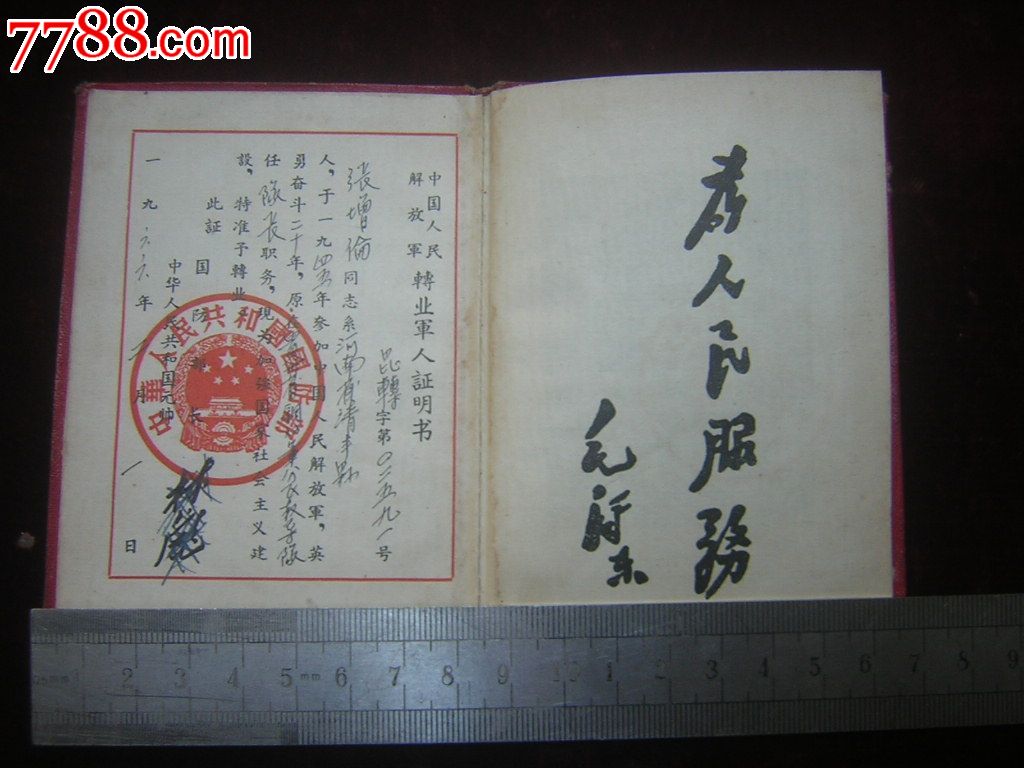 7788.com
为人民服務
毛泽东
中国人民
解放軍
轉业軍人証明书
昆轉字第〇二五九八号
張增倫同志系河南省清丰县
人，于一九四五年参加中国人民解放軍，英
勇奋斗二十年，原
任隊长职务，現为加強国家社会主义建
設，特准予轉业。
此証
国防部长
中华人民共和国元帅
林彪
一九六六年 月一日
中華人民共和國國防部
2 3 4 5 mm 6 7 8 9 10 1 2 3 4 5 6 7 8 9